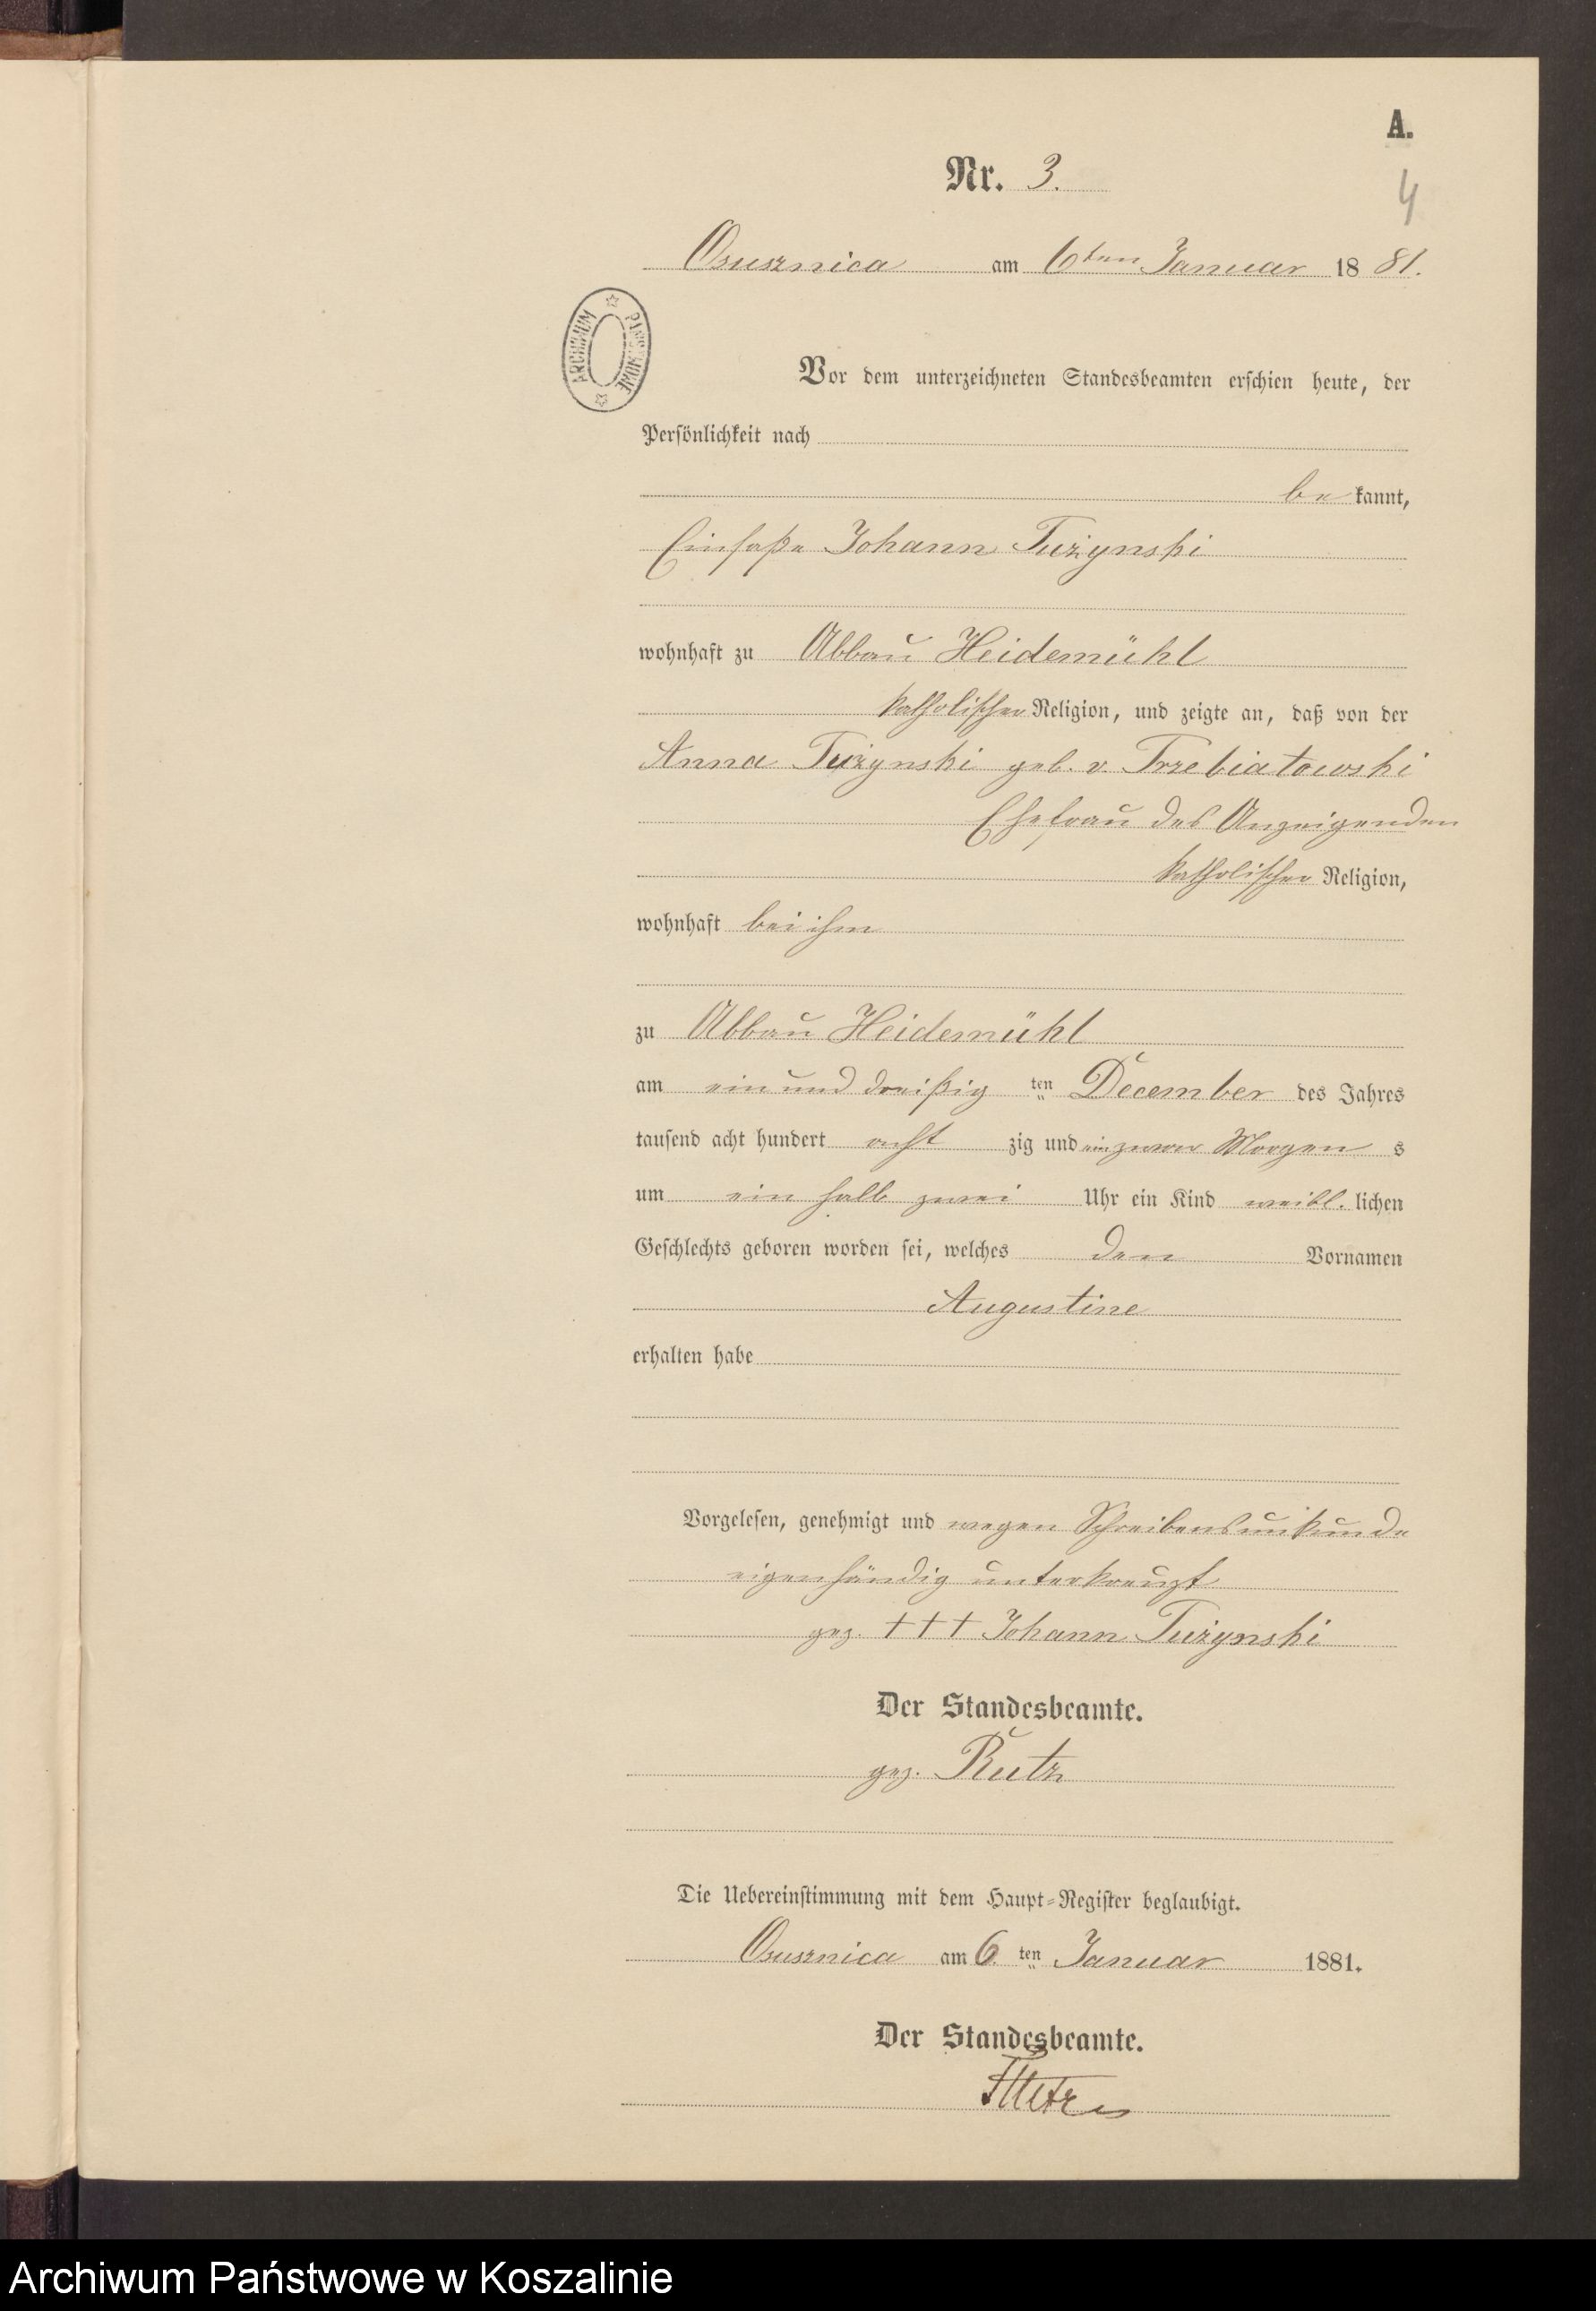 A.
Nr. 3.
4
Osusznica am 6ten Januar 1881.
ARCHIWUM PAŃSTWOWE
Vor dem unterzeichneten Standesbeamten erschien heute, der
Persönlichkeit nach
be kannt,
Einsaße Johann Tużynski
wohnhaft zu Abbau Heidemühl
katholischer Religion, und zeigte an, daß von der
Anna Tużynski geb. v. Trzebiatowski
Ehefrau des Anzeigenden
katholischer Religion,
wohnhaft bei ihm
zu Abbau Heidemühl
am ein und dreißig ten December des Jahres
tausend acht hundert acht zig und zwar Morgen s
um ein halb zwei Uhr ein Kind weibl. lichen
Geschlechts geboren worden sei, welches den Vornamen
Augustine
erhalten habe
Vorgelesen, genehmigt und wegen Schreibensunkunde
eigenhändig unterkreuzt
gez. +++ Johann Tużynski
Der Standesbeamte.
gez. Rutz
Die Uebereinstimmung mit dem Haupt-Register beglaubigt.
Osusznica am 6. ten Januar 1881.
Der Standesbeamte.
Archiwum Państwowe w Koszalinie